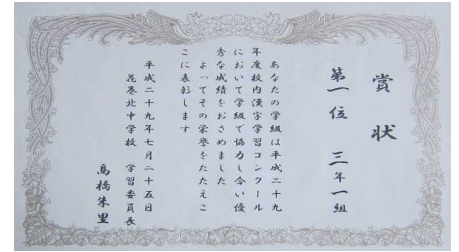 賞状
第一位 三年一組
あなたの学級は平成二十九
年度校内漢字学習コンクール
において学級で協力し合い優
秀な成績をおさめました
よってその栄誉をたたえこ
こに表彰します
平成二十九年七月二十五日
花巻北中学校 学習委員長
高橋朱里